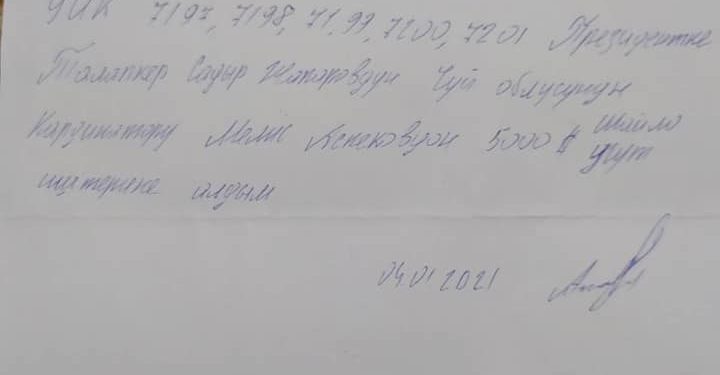 УИК 7197, 7198, 7199, 7200, 7201 Президентке
Талапкер Садыр Жапаровдун Чүй облусунун
Кардинатору Мелис Аспековдон 5000 $ шайло
учут
иштерине алдым
04.01.2021